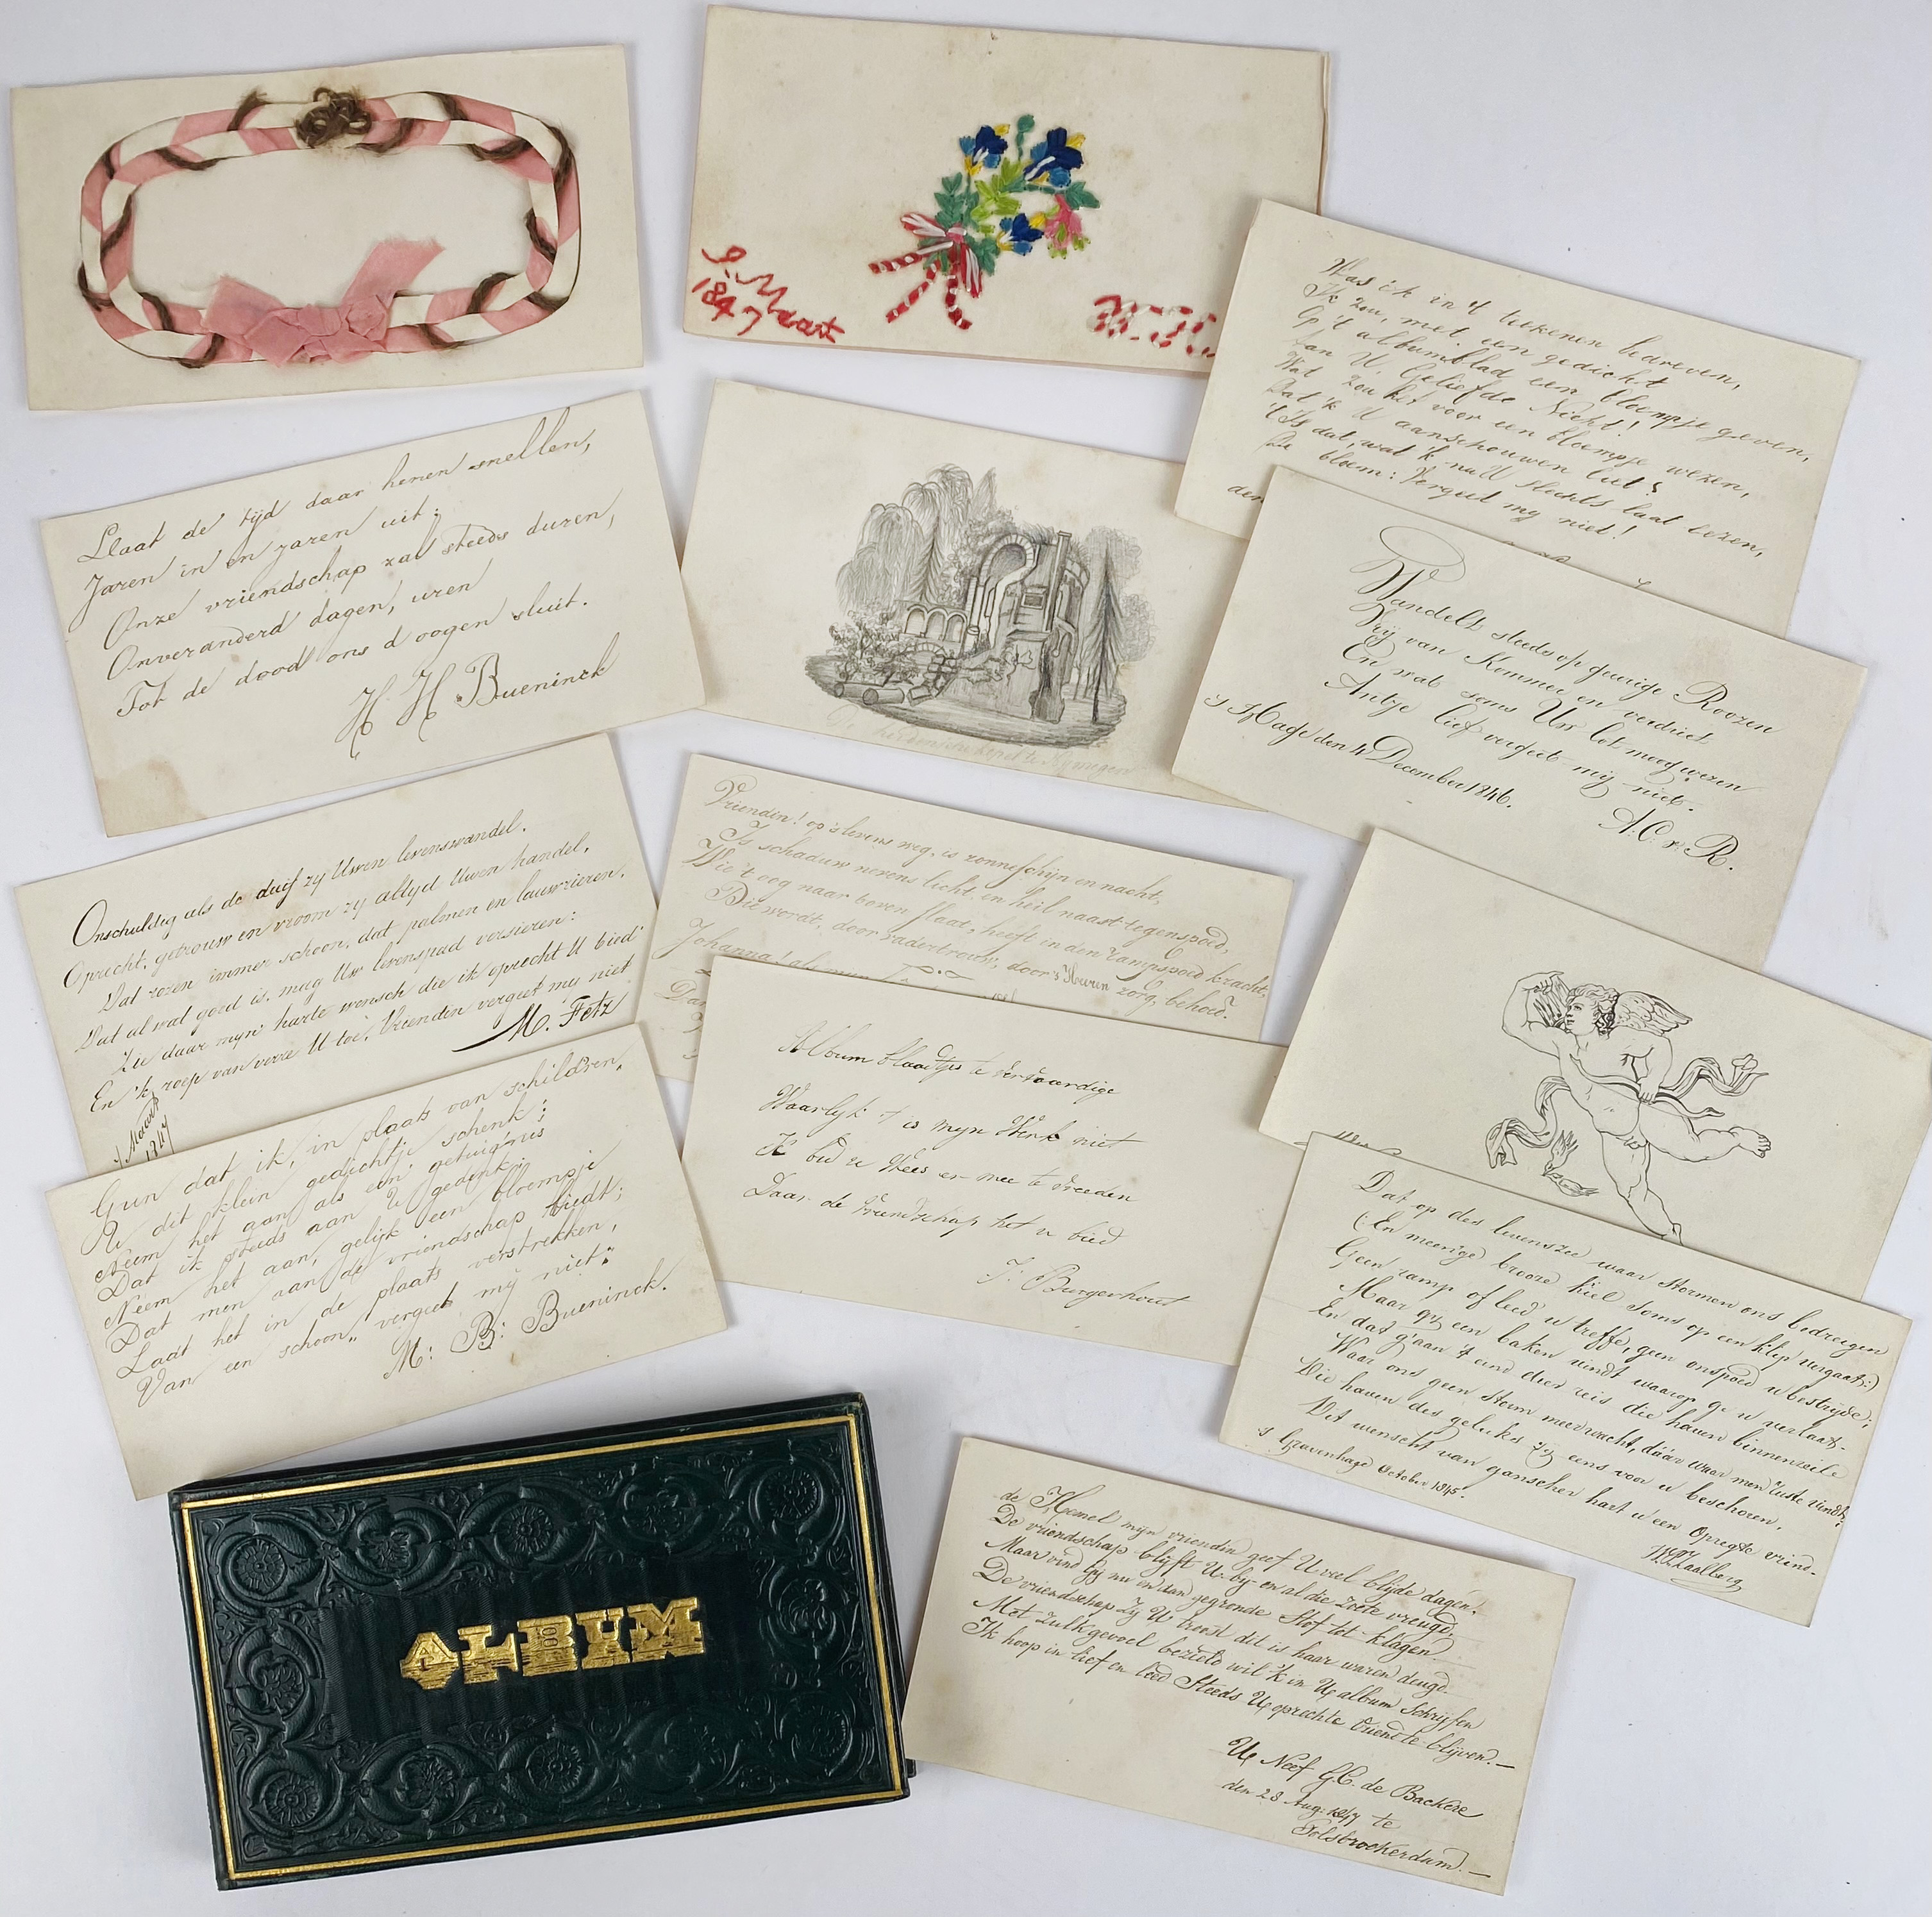 Maart
1847
Laat de tijd daar henen snellen,
Jaren in en jaren uit:
Onze vriendschap zal steeds duren,
Onveranderd dagen, uren
Tot de dood ons d oogen sluit.
H H Bueninck
Onschuldig als de duif zy Uwen levenswandel.
Oprecht, getrouw en vroom zy altyd Uwen handel,
Dat rozen immer schoon, dat palmen en lauwrieren,
Dat al wat goed is, mag Uw levenspad versieren:
Zie daar myn' harte wensch die ik oprecht U bied'
En 'k roep van verre U toe, Vriendin vergeet my niet
M. Fetz
Maart
1847
Gun dat ik, in plaats van schild'ren,
U dit klein gedichtje schenk;
Neem het aan als een getuig'nis
Dat ik steeds aan U gedenk;
Neem het aan, gelijk een bloempje
Dat men aan de vriendschap biedt;
Laat het in de plaats verstrekken,
Van een schoon „ vergeet mij niet"
M: B: Bueninck.
ALBUM
De heidensche kapel te Nymegen
Vriendin! op 's levens weg, is zonneschijn en nacht,
Is schaduw nevens licht, en heil naast tegenspoed,
Wie 't oog naar boven slaat, heeft in den rampspoed kracht,
Die wordt, door vadertrouw, door 's Heeren zorg, behoed.
Johanna! als
Dan
Album blaadjes te vervaardige
Waarlyk 't is myn Werk niet
K bid u Wees er mee te vreeden
Daar de Vriendschap het u bied
J: Burgerhout
Was ik in 't teekenen bedreven,
Ik zou, met een gedicht
Op 't albumblad een bloempje geven,
Aan U Geliefde Nicht!
Wat zou het voor een bloempje wezen,
Dat 'k U aanschouwen liet?
't Is dat, wat 'k nu U slechts laat lezen,
De bloem: Vergeet my niet!
den
Wandelt steeds op geurige Roozen
Vrij van Kommer en verdriet
En wat soms Uw lot moog wezen
Antje lief vergeet mij niet.
's Hage den 4 December 1846.
A. C. v. R.
Dat op des levenszee waar stormen ons bedreigen
(:En meenige brooze kiel soms op een klip vergaat:)
Geen ramp of leed u treffe, geen onspoed u bestryde;
Maar gy een baken vindt waarop ge u verlaat.
En dat g'aan 't eind dier reis die haven binnenzeile
Waar ons geen storm meer wacht, dáár waar men ruste vindt;
Die haven des geluks zy eens voor u beschoren,
Dit wenscht van ganscher hart u een Opregte vrind.
's Gravenhage October 1845.
W. Kaalberg
de Hemel mijn vriendin geef U veel blijde dagen,
De vriendschap blijft U by en al die zoete vreugd,
Maar vind Gij nu en dan gegronde Stof tot klagen
De vriendschap Zij U troost dit is haar waren deugd
Met zulk gevoel bezield wil 'k in Ue album Schrijfen
Ik hoop in lief en leed Steeds Ue oprechte Vriend te blijven.—
Ue Neef G.C. de Backere
den 28 Aug: 1847 te